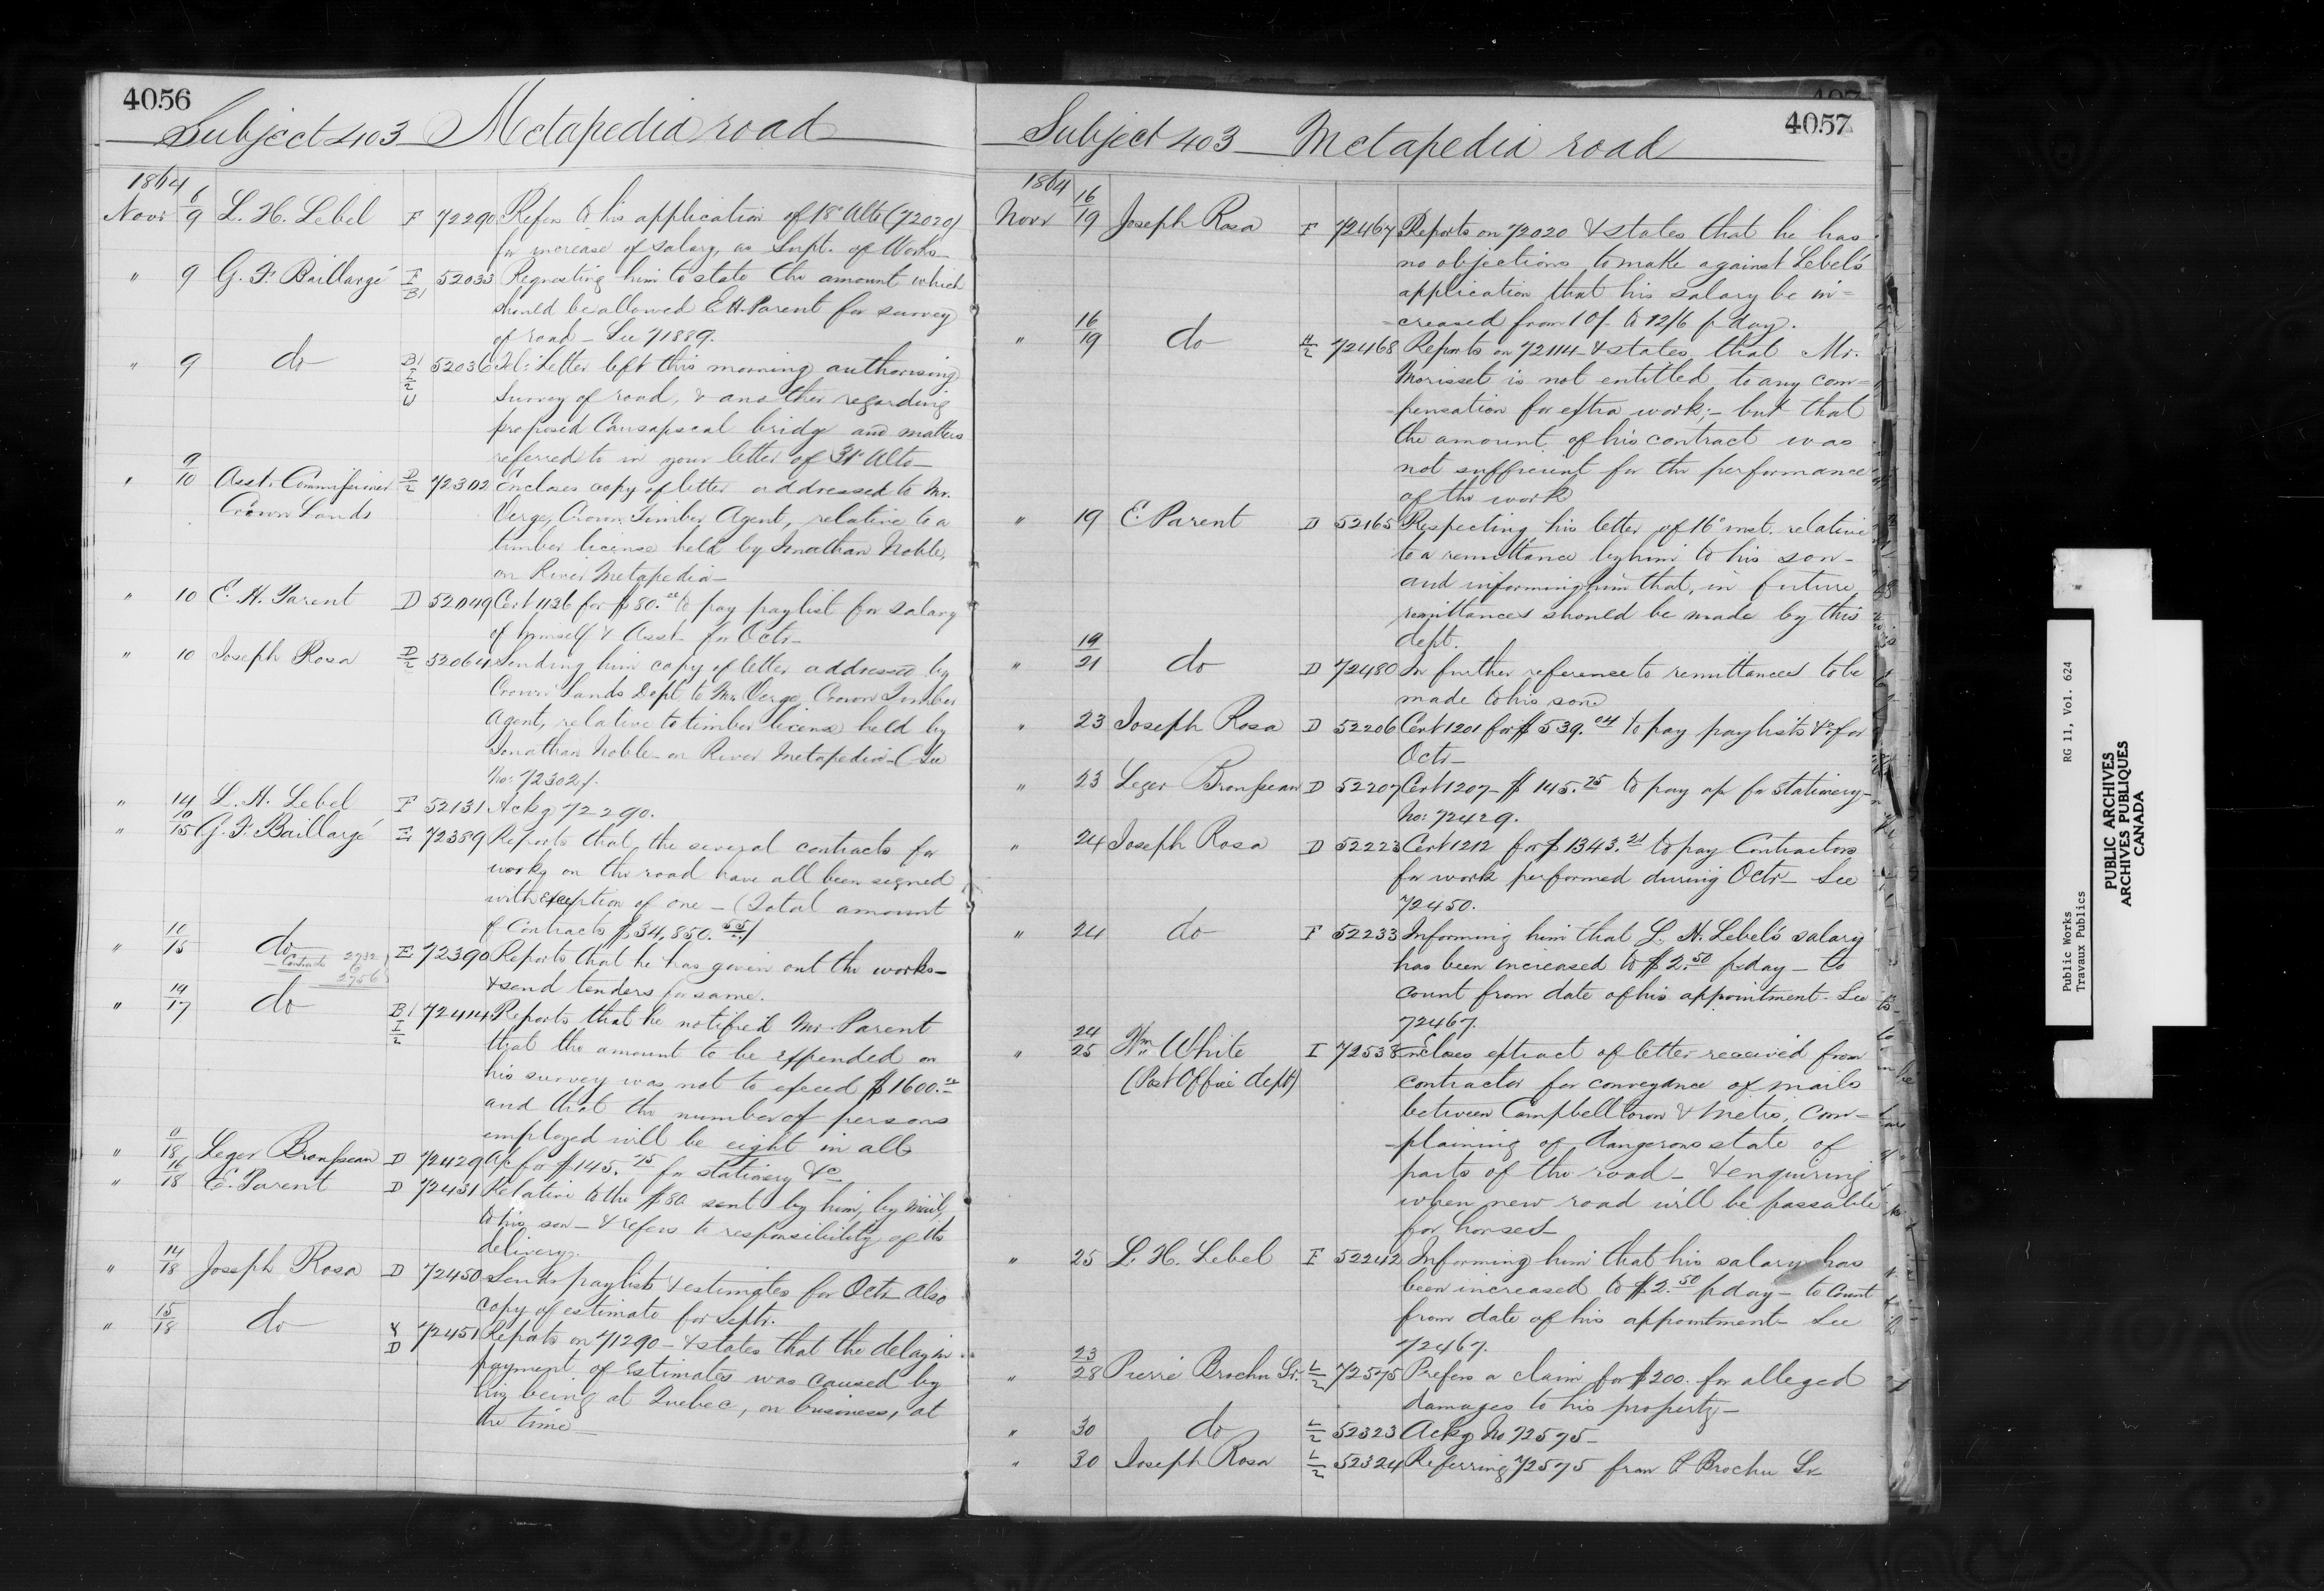 4056
Subject 403 Metapedia road
1864
Novr 6/9 L. H. Lebel F 72290 Refers to his application of 18th Ulto (72020)
for increase of salary, as Supt. of Works
" 9 G. F. Baillargé I B1 52033 Requesting him to state the amount which
should be allowed E H. Parent for survey
of road - See 71889.
" 9 do B1 I/2 W 52036 Tel: Letter left this morning authorising
survey of road, & another regarding
proposed Causapscal bridge and matters
referred to in your letter of 31st Ulto -
" 9/10 Asst. Commissioner D/2 72302 Encloses copy of letter addressed to Mr.
Crown Lands Verge, Crown Timber Agent, relative to a
timber license held by Jonathan Noble,
on River Metapedia -
" 10 E. H. Parent D 52049 Cert 1126 for $80.00 to pay paylist for salary
of himself & Asst. for Octr -
" 10 Joseph Rosa D/2 52064 Sending him copy of letter addressed by
Crown Lands Dept to Mr. Verge, Crown Timber
Agent, relative to timber license held by
Jonathan Noble - on River Metapedia - (See
No: 72302).
" 14 L. H. Lebel F 52131 Ackg 72290.
" 10/15 G. F. Baillargé E 72389 Reports that the several contracts for
works on the road have all been signed
with exception of one - (Total amount
of Contracts $34,850.55)
" 10/15 do E 72390 Reports that he has given out the works -
Contracts 2732 to 2756
& send tenders for same.
" 14/17 do B1 I/2 72414 Reports that he notified Mr. Parent
that the amount to be expended on
his survey was not to exceed $1600.00
and that the number of persons
employed will be eight in all
" 11/18 Leger Brousseau D 72429 a/c for $145.75 for stationery &c -
" 16/18 E. Parent D 72431 Relative to the $80 sent by him, by mail,
to his son - & refers to responsibility of its
delivery.
" 14/18 Joseph Rosa D 72450 Sends paylists & estimates for Octr also
copy of estimate for Septr.
" 15/18 do Y D 72451 Reports on 71290 - & states that the delay in
payment of Estimates was caused by
his being at Quebec, on business, at
the time -
4057
Subject 403 Metapedia road
1864
Novr 16/19 Joseph Rosa F 72467 Reports on 72020 & states that he has
no objections to make against Lebel's
application that his salary be in=
=creased from 10/- to 12/6 p day.
" 16/19 do H/2 72468 Reports on 72114 & states that Mr.
Morisset is not entitled to any com=
-pensation for extra work; - but that
the amount of his contract was
not sufficient for the performance
of the work
" 19 E. Parent D 52165 Respecting his letter of 16th inst. relative
to a remittance by him to his son -
and informing him that, in future
remittances should be made by this
dept.
" 19/21 do D 72480 In further reference to remittances to be
made to his son
" 23 Joseph Rosa D 52206 Cert 1201 for $539.04 to pay paylists &c for
Octr -
" 23 Leger Brousseau D 52207 Cert 1207 - $145.75 to pay a/c for stationery -
No: 72429.
" 24 Joseph Rosa D 52223 Cert 1212 for $1343.21 to pay Contractors
for work performed during Octr - See
72450.
" 24 do F 52233 Informing him that L. H. Lebel's salary
has been increased to $2.50 p day - to
count from date of his appointment - See
72467.
" 24/25 Wm White I 72538 Encloses extract of letter received from
(Post Office dept) contractor for conveyance of mails
between Campbelltown & Metis, Com=
-plaining of dangerous state of
parts of the road - & enquiring
when new road will be passable
for horses -
" 25 L. H. Lebel F 52242 Informing him that his salary has
been increased to $2.50 p day - to Count
from date of his appointment - See
72467.
" 23/28 Pierre Brochu Sr. L/2 72575 Prefers a claim for $200. for alleged
damages to his property -
" 30 do L/2 52323 Ackg No 72575 -
" 30 Joseph Rosa L/2 52324 Referring 72575 from P Brochu Sr
Public Works RG 11, Vol. 624
Travaux Publics
PUBLIC ARCHIVES
ARCHIVES PUBLIQUES
CANADA